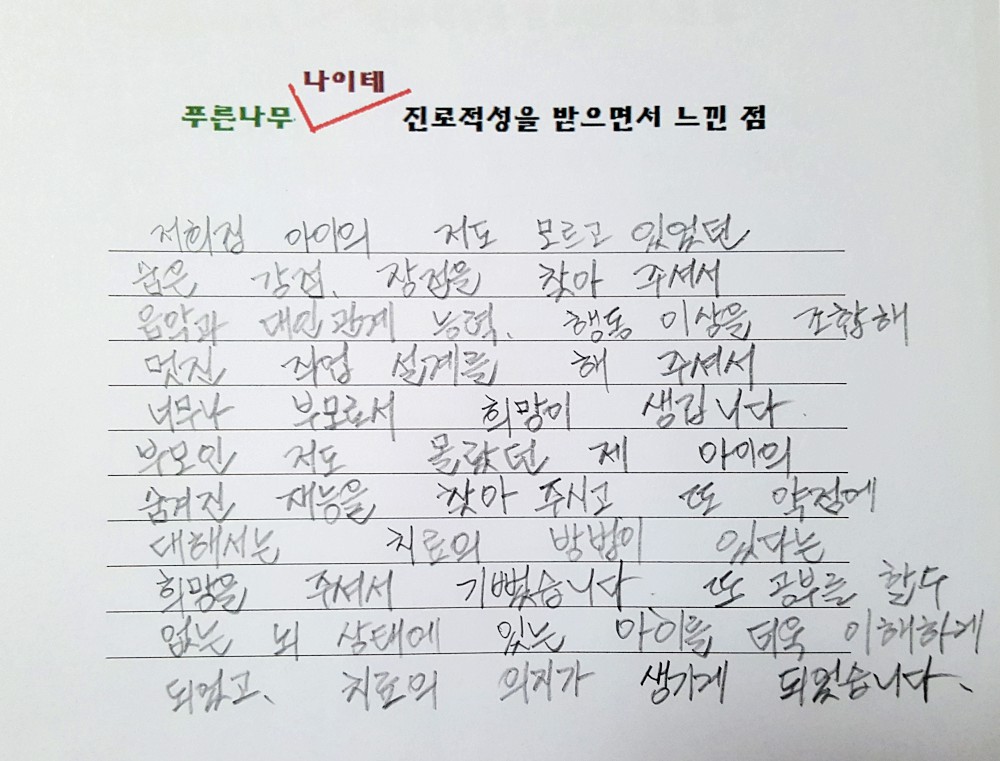 나이테
푸른나무 진로적성을 받으면서 느낀 점
저희집 아이의 저도 모르고 있었던
숨은 강점, 장점을 찾아 주셔서
음악과 대인관계 능력, 행동 이상을 조합해
멋진 직업 설계를 해 주셔서
너무나 부모로서 희망이 생깁니다.
부모인 저도 몰랐던 제 아이의
숨겨진 재능을 찾아 주시고 또 약점에
대해서는 치료의 방법이 있다는
희망을 주셔서 기뻤습니다. 또 공부를 할 수
없는 뇌 상태에 있는 아이를 더욱 이해하게
되었고, 치료의 의지가 생기게 되었습니다.